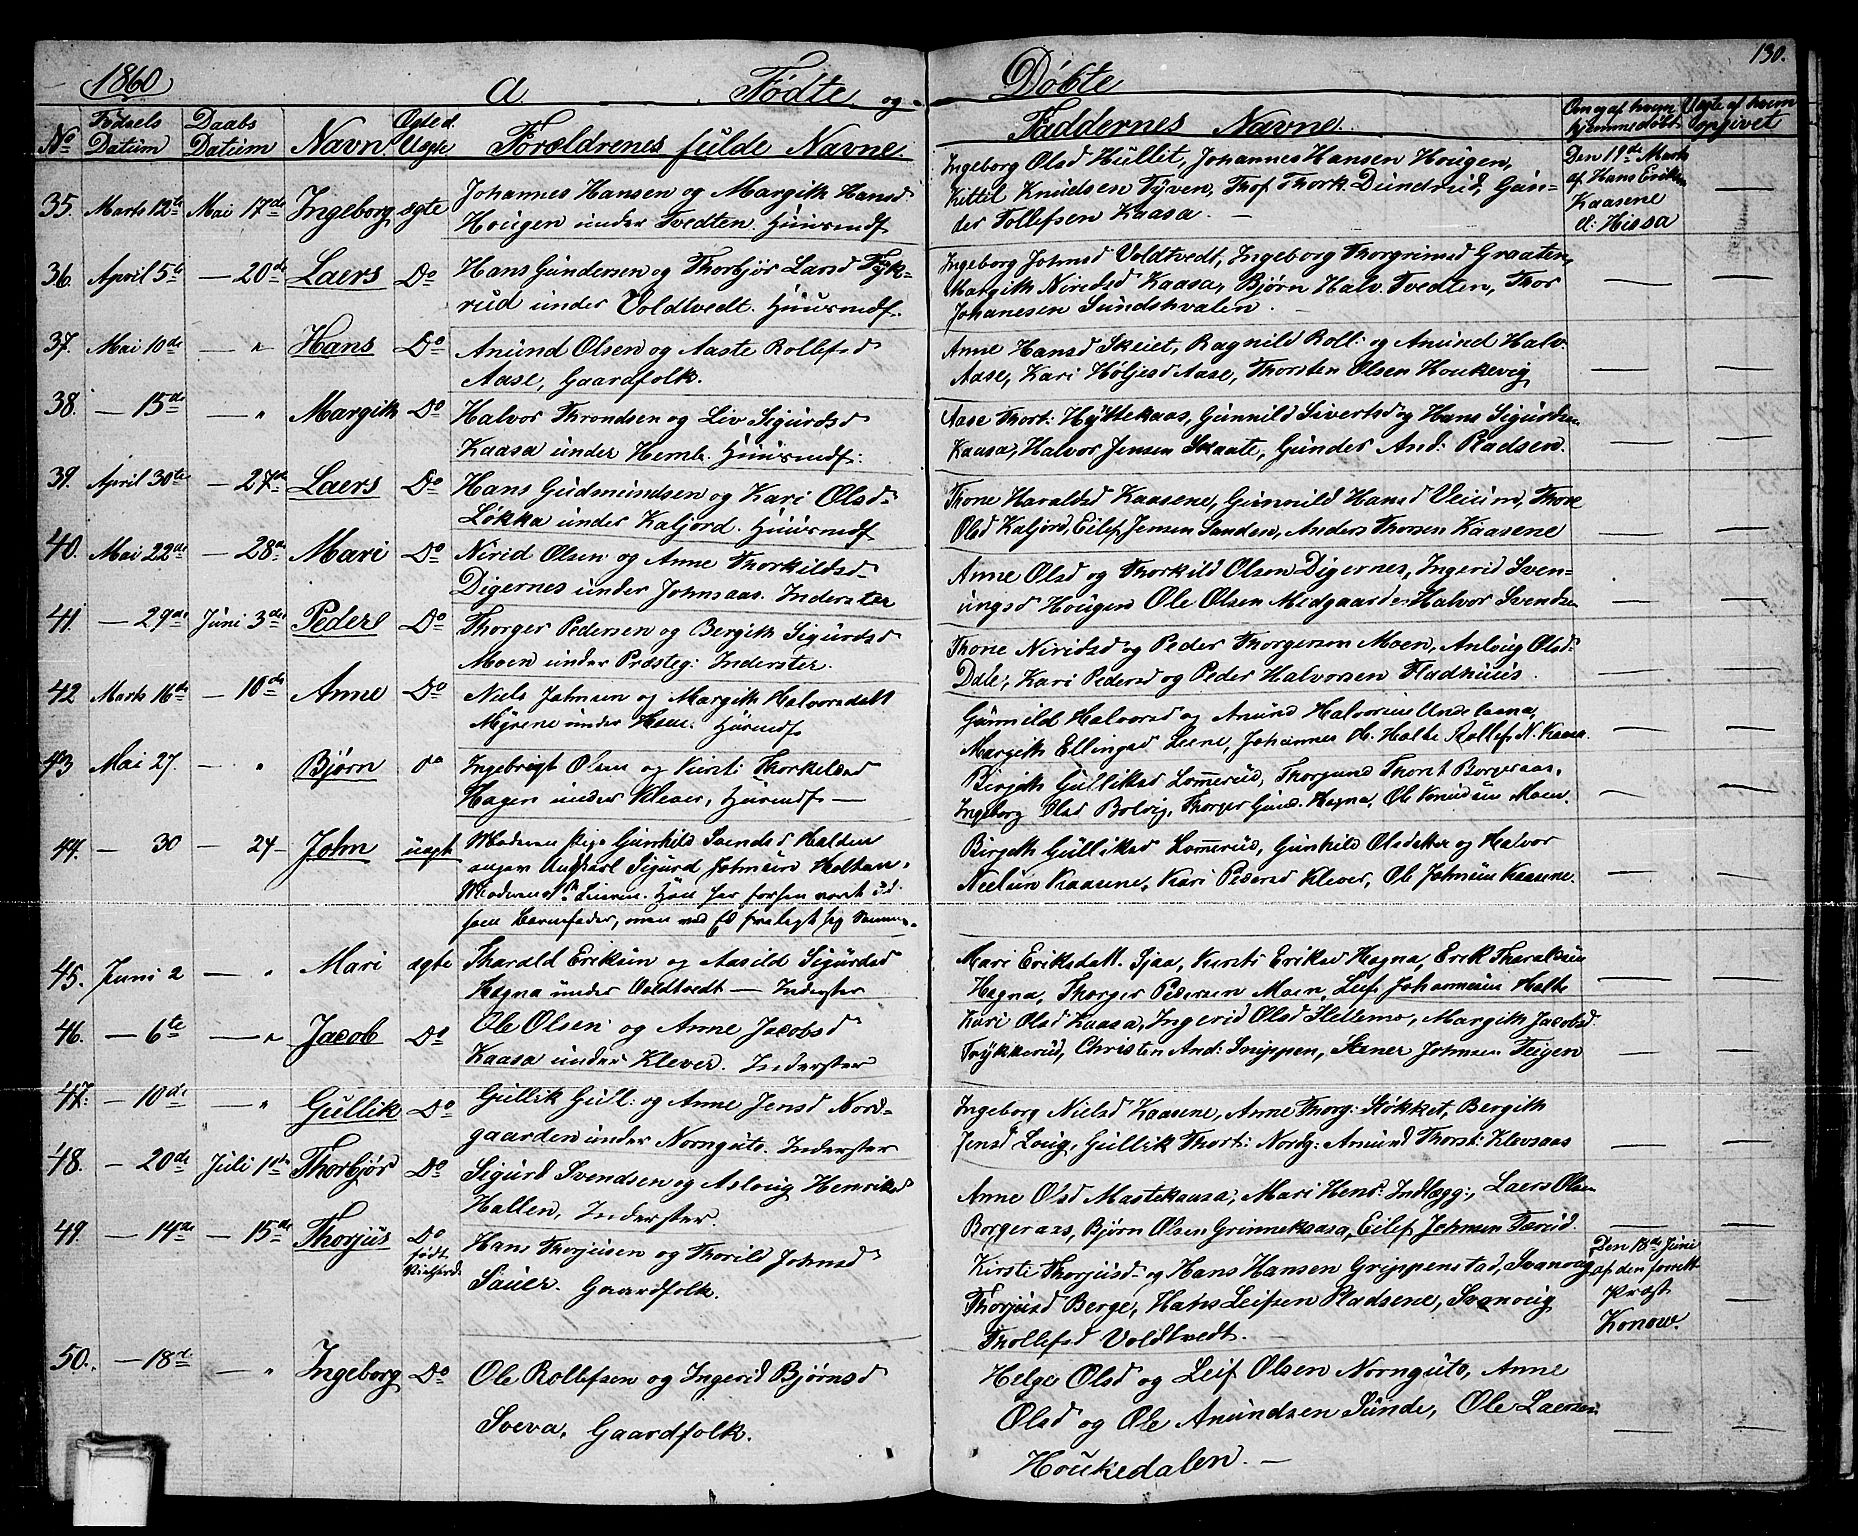 130.
1860
A. Fødte og Døbte
No Fødsels Datum Daabs Datum Navn. Ægte el. Uægte Forældrenes fulde Navne. Faddernes Navne. Om og af hvem hjemmedøbt Uægte af hvem opgivet
35. Marts 12te Mai 17de Ingeborg ægte Johannes Hansen og Margith Hansd
Hougen under Tvedten. Huusmdf
Ingeborg Olsd Hullet, Johannes Hansen Hougen,
Kittel Knudsen Tyven, Thof Thork Dundrud, Gun-
der Tollefsen Kaasa. —
Den 19de Marts
af Hans Eriksen
Kaasene
el: Hissa
36. April 5te — 20de Laers Do Hans Gundersen og Thorbjør Larsd Tyk-
rud under Voldtvedt. Huusmdf.
Ingeborg Johnsd Voldtvedt, Ingeborg Thorgrimsd Graaten,
Margith Niridsd Kaasa, Bjørn Halv. Tvedten, Thor
Johanesen Sundshvalen.
37. Mai 10de — " Hans Do Anund Olsen og Aaste Rollefsd
Aase, Gaardfolk.
Anne Hansd Skeiet, Ragnild Roll: og Anund Halv.
Aase, Kari Høljesd Aase, Thorsten Olsen Houkevig
38. — 15de " Margith Do Halvor Throndsen og Liv Sigurdsd
Kaasa under Hemb. Huusmdf:
Aase Thort: Hyttekaas, Gunnild Sivertsd og Hans Sigurdsen
Kaasa, Halvor Jensen Skaate, Gunder And: Radsen.
39. April 30te — 27de Laers Do Hans Gudmundsen og Kari Olsd
Løkka under Kaljord. Huusmdf
Thone Haraldsd Kaasene, Gunnild Hansd Veium, Thone
Olsd Kaljord, Eilef Jensen Sanden, Anders Thorsen Kaasene
40. Mai 22de — 28de Mari Do Nirid Olsen og Anne Thorkildsd
Digernes under Johnsaas. Inderster
Anne Olsd og Thorkild Olsen Digernes, Ingerid Sven-
ungsd Hougen Ole Olsen Midgaarde Halvor Svendsen
41. — 29de Juni 3die Peder Do Thorger Pedersen og Bergith Sigurdsd
Moen under Præsteg: Inderster.
Thone Niridsd og Peder Thorgersen Moen, Anloug Olsd
Dale, Kari Pedersd og Peder Halvorsen Fladhuus.
42 Marts 16de — 10de Anne Do Niels Johnsen og Margith Halvorsdatt
Myrene under Haae. Husmdf
Gunnild Halvorsd og Anund Halvorsen Undelaana,
Margith Ellingsd Leene, Johannes Ol. Holte Rollef N. Kaasa.
43 Mai 27. — " Bjørn do Ingebregt Olsen og Kirsti Thorkelsd
Hagen under Klever, Husmdf —
Birgith Gulliksd Lomerud, Thorgund Thorst Borgeraas,
Ingeborg Olsd Bolvig, Thorger Gund. Hagna, Ole Knudsen Moen.
44. — 30 — 24 — John uægt Moderen Pige Gunhild Svendsd Halden
angav Ungkarl Sigurd Johnsen Holtan
Birgith Gulliksd Lomerud, Gunhild Olsd og Halvor
Nielsen Kaasene, Kari Pedersd Klever, Ole Johnsen Kaasene.
45. Juni 2 — " Mari ægte Tharald Eriksen og Aasild Sigurdsd
Hagna under Voldtvedt — Inderster
Mari Eriksdatt. Tjaa, Kirsti Eriksd Hagna, Erik Tharaldsen
Hagna, Thorger Pedersen Moen, Leif Johannesen Holte
46. — 6te — " Jacob Do Ole Olsen og Anne Jacobsd
Kaasa under Klever. Inderster
Kari Olsd Kaasa, Ingerid Olsd Hellemo, Margith Jacobsd
Trykkerud, Christen And: Snippen, Stener Johnsen Teigen
47. — 10de — " Gullik Do Gullik Gull: og Anne Jensd Nord-
gaarden under Nornguto. Inderster
Ingeborg Nielsd Kaasene, Anne Thorg: Støkket, Bergith
Jensd Loug, Gullik Thort: Nordg: Amund Thorst: Klevsaas
48. — 20de Juli 1ste Thorbjør Do Sigurd Svendsen og Asloug Henriksd
Hallen, Inderster.
Anne Olsd Mastekaasa, Mari Henr: Indlægg:, Laers Olsen
Borgeraas, Bjørn Olsen Grinnekaasa, Eilef Johnsen Tærud.
49. — 14de — 15de Thorjus Do
født
Hans Thorjusen og Thorild Johnsd
Sauer. Gaardfolk.
Kirsti Thorjusd og Hans Hansen Grippenstad, Svanoug
Thorjusd Berge, Hans Leifsen Rladsene, Svanoug
Thollefsd Voldtvedt. —
Den 18de Juni
af den forrett
Præst
Konow.
50. — 18de — " Ingeborg Do Ole Rollefsen og Ingerid Bjørnsd
Sveva, Gaardfolk.
Helge Olsd og Leif Olsen Nornguto, Anne
Olsd og Ole Anundsen Sunde, Ole Laersen
Houkedalen. —